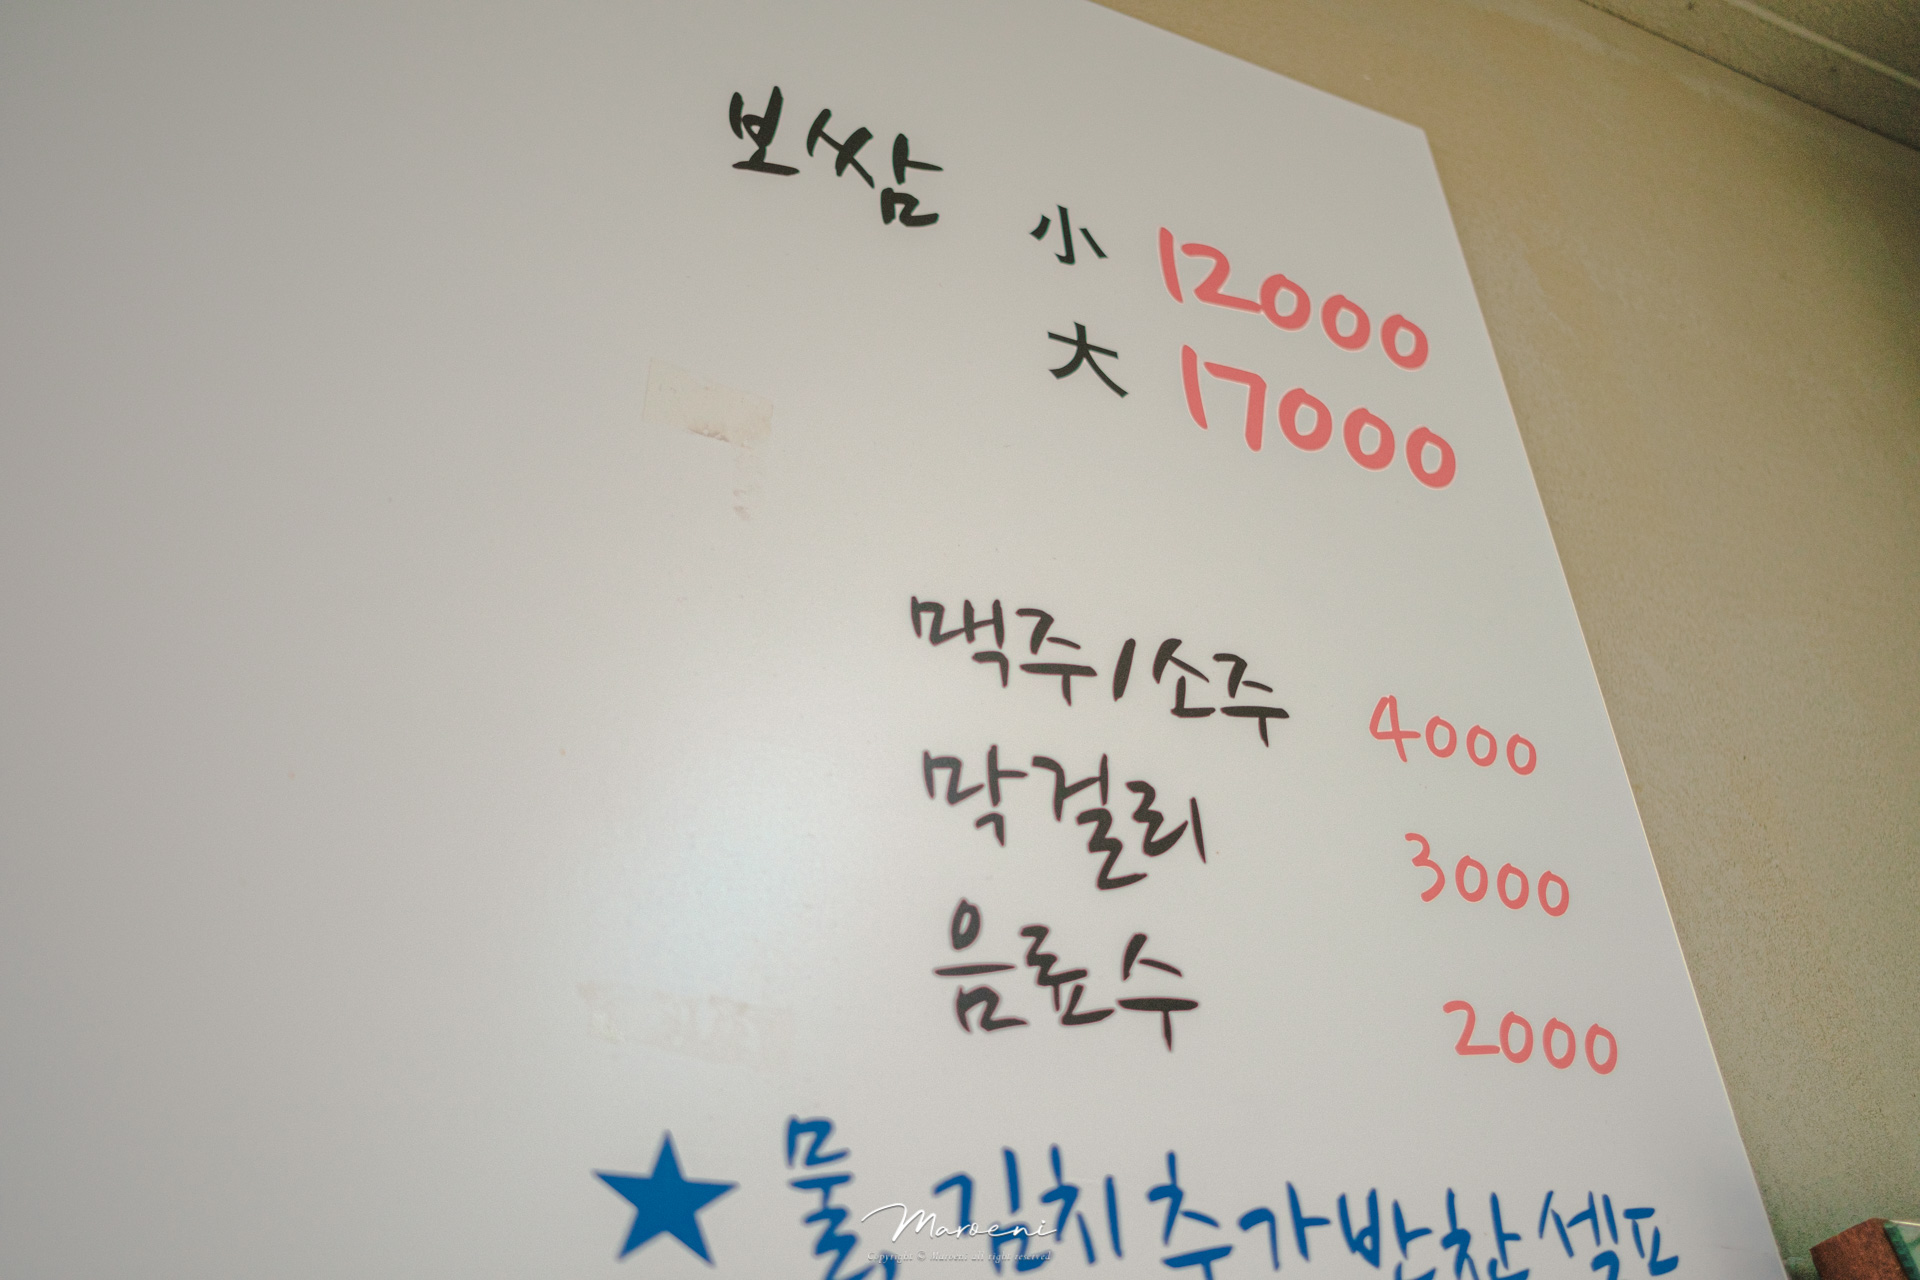 보쌈 小 12000
大 17000
맥주/소주 4000
막걸리 3000
음료수 2000
★ 물, 김치추가반찬셀프
Maroeni
Copyright © Maroeni all right reserved